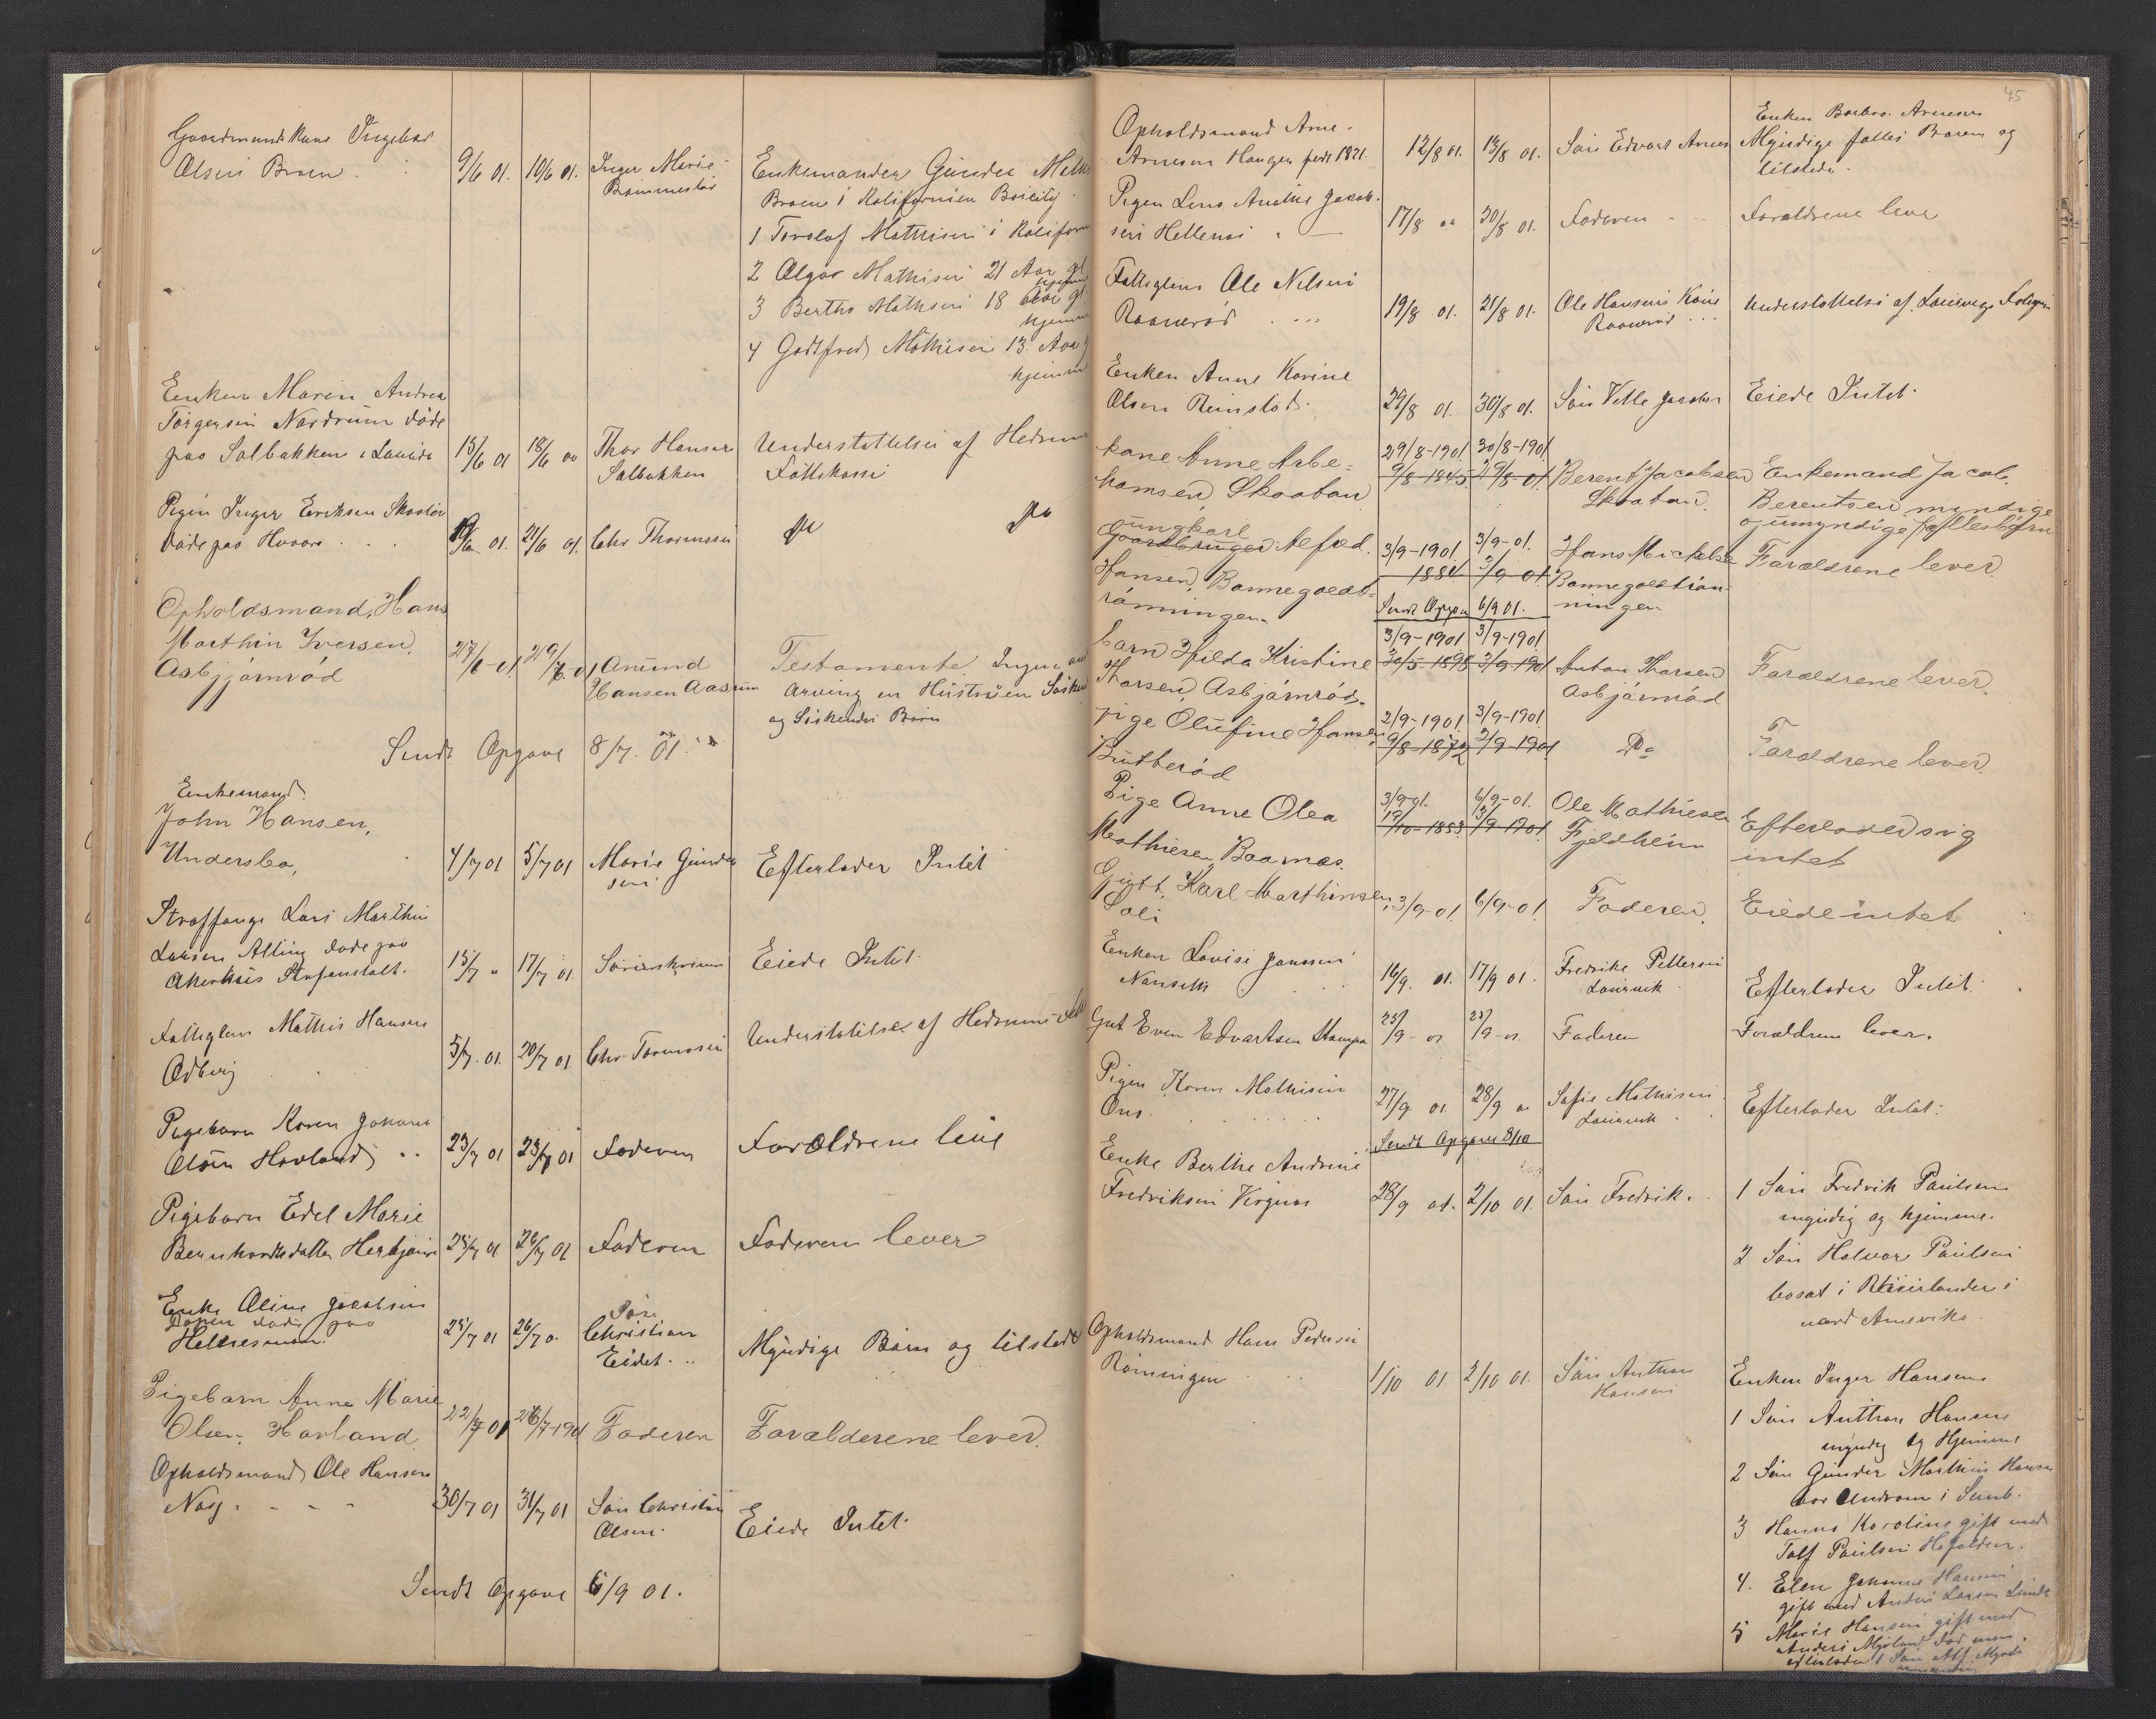 Gaardmandskone Ingebor
Olsen Broen
9/6 01. 10/6 01. Inger Marie
Brommestø
Enkemanden Gunder
Broen i Kalifornien
1 Torolof Mathisen i Kaliforn
2 Olgar Mathisen 21 Aar gl
hjemme
3 Bertha Mathisen 18 Aar gl.
hjemme
4 Godtfred Mathisen 13 Aar
hjemme
Enken Maren Andrea
Torgersen Nordrum døde
paa Solbakken i Laurdø
15/6 01 18/6 00 Thor Hansen
Solbakken
Understøttelse af Hedrum
Fattekasse
Pigen Inger Eriksen
døde paa
19/6 01. 21/6 01. Chr Thoressen
do do
Opholdsmand, Hans
Marthin Iversen,
Asbjørnrød
27/6-01 29/6-01 Amund
Hansen Aasrum
Testamente Ingen
arving en Hustruen Søsken
og Søskendes Børn
Sendt Opgave 8/7. 01.
Enkemand.
John Hansen,
Undersbo,
4/7 01 5/7 01 Marie Gunder
sen
Efterlader Intet
Straffange Lars Marthin
Larsen Alting døde paa
Akershus Strafanstalt.
15/7 " 17/7 01. Sorenskriveren
Eiede Intet.
Fattiglem Mathis Hansen
Odberg
5/7. 01. 20/7 01 Chr Toressen
Understøttelse af Hedrum
Pigebarn Karen Johanne
Olsen Havland
23/7 01 23/7 01 Faderen Forældrene leve
Pigebarn Edel Marie
Bernhardtsdatter
25/7 01 26/7 01 Faderen Faderen lever
Enke Oline Jacobsen
døde paa
25/7 01 26/7 0. Søn
Christian
Eidet. Myndige Børn og tilstede
Pigebarn Anne Marie
Olsen, Havland.
22/7 01 26/7-1901 Faderen Foralderene lever.
Opholdsmand Ole Hansen
Nøg.
30/7 01 31/7 01 Søn Christian
Olsen. Eiede Intet.
Sendt Opgave 6/9 01.
45
Opholdsmand Arne
Arnesen Haugen født 1821.
12/8 01. 13/8 01. Søn Edvart Arnes
Enken Barbro Arnesen
Myndige fælles Børn og
tilstede.
Pigen Lena Amalie Jacob
sen Hellenes
17/8 00 20/8 01. Faderen Forældrene leve
Fattiglem Ole Nilsen
Raanerød
19/8 01. 21/8 01. Ole Hansens Kone
Raanerød
Understøttelse af
Enken Anne Karine
Olsen Rimstad.
29/8 01. 30/8 01. Søn Vetle Jacobsen Eiede Intet.
29/8-1901 30/8-1901
kone Anne Abra=
hamsen, Skaatan
9/8-1845. 29/8-01. Berent Jacobsen
Skaatan.
Enkemand Jacob.
Berentsen myndige
ogumyndige fællesbørn
ungkarl
Gaardbruger Alfred.
Hansen, Bonnegoldt=
rønningen.
3/9-1901 3/9-01.
1884 3/9-01 Hans Mickelsen
Bonnegoldtrøn-
ningen
Forældrene lever
Sendt Opgave 6/9 01.
barn Hilda Kristine
Thorsen, Asbjørnrød.
3/9-1901 3/9-1901
30/5-1898 3/9-1901 Anton Thorsen
Asbjørnrød
Forældrene lever.
pige Olufine Hansen
Brutberød
2/9-1901 3/9-1901
9/8-1872 2/9-1901 Do Forældrene lever.
Pige Anne Olea
Mathiesen, Boamas.
3/9-01. 6/9-01.
19/10-1853. 3/9-1901. Ole Mathiesen
Fjeldheim
Efterlodedsig
intet
Gift. Karl Marthinsen,
Soli
3/9-01. 6/9-01 Faderen, Eiedeintet
Enken Lovise Jansen
Nanseth
16/9. 01. 17/9 01. Fredrike Pettersen
Laurvik
Efterlader Intet.
Gut Even Edvartsen Stampa
23/9-01 23/9-01. Faderen Forældrene lever.
Pigen Karen Mathisen
Ons.
27/9 01 28/9 01 Sofie Mathisen
Laurvik
Efterlader Intet.
Sendt Opgave 3/10
Enke Berthe Andrine
Fredriksen Vergnes
28/9 01. 2/10 01. Søn Fredrik.
1 Søn Fredrik Paulsen
myndig og hjemme.
2 Søn Halvor Paulsen
bosat i
nord Amerika.
Opholdsmand Hans Pedersen
Rønningen
1/10 01. 2/10 01. Søn Anthon
Hansen
Enken Inger Hansen
1 Søn Anthon Hansen
myndig og Hjemme
2 Søn Gunder Mathias Hansen
bor
3 Hanna Karoline gift med
Tolf Paulsen
4. Elen Johanne Hansen
gift med Anders Larsen Lunde
5 Marie Hansen gift med
Anders død men
efterlader 1 Søn Alf